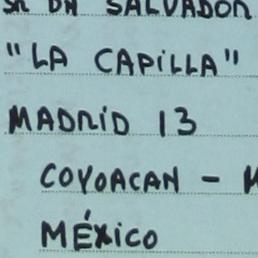 SR DN SALVADOR
"LA CAPILLA"
MADRID 13
COYOACAN -
MÉXICO